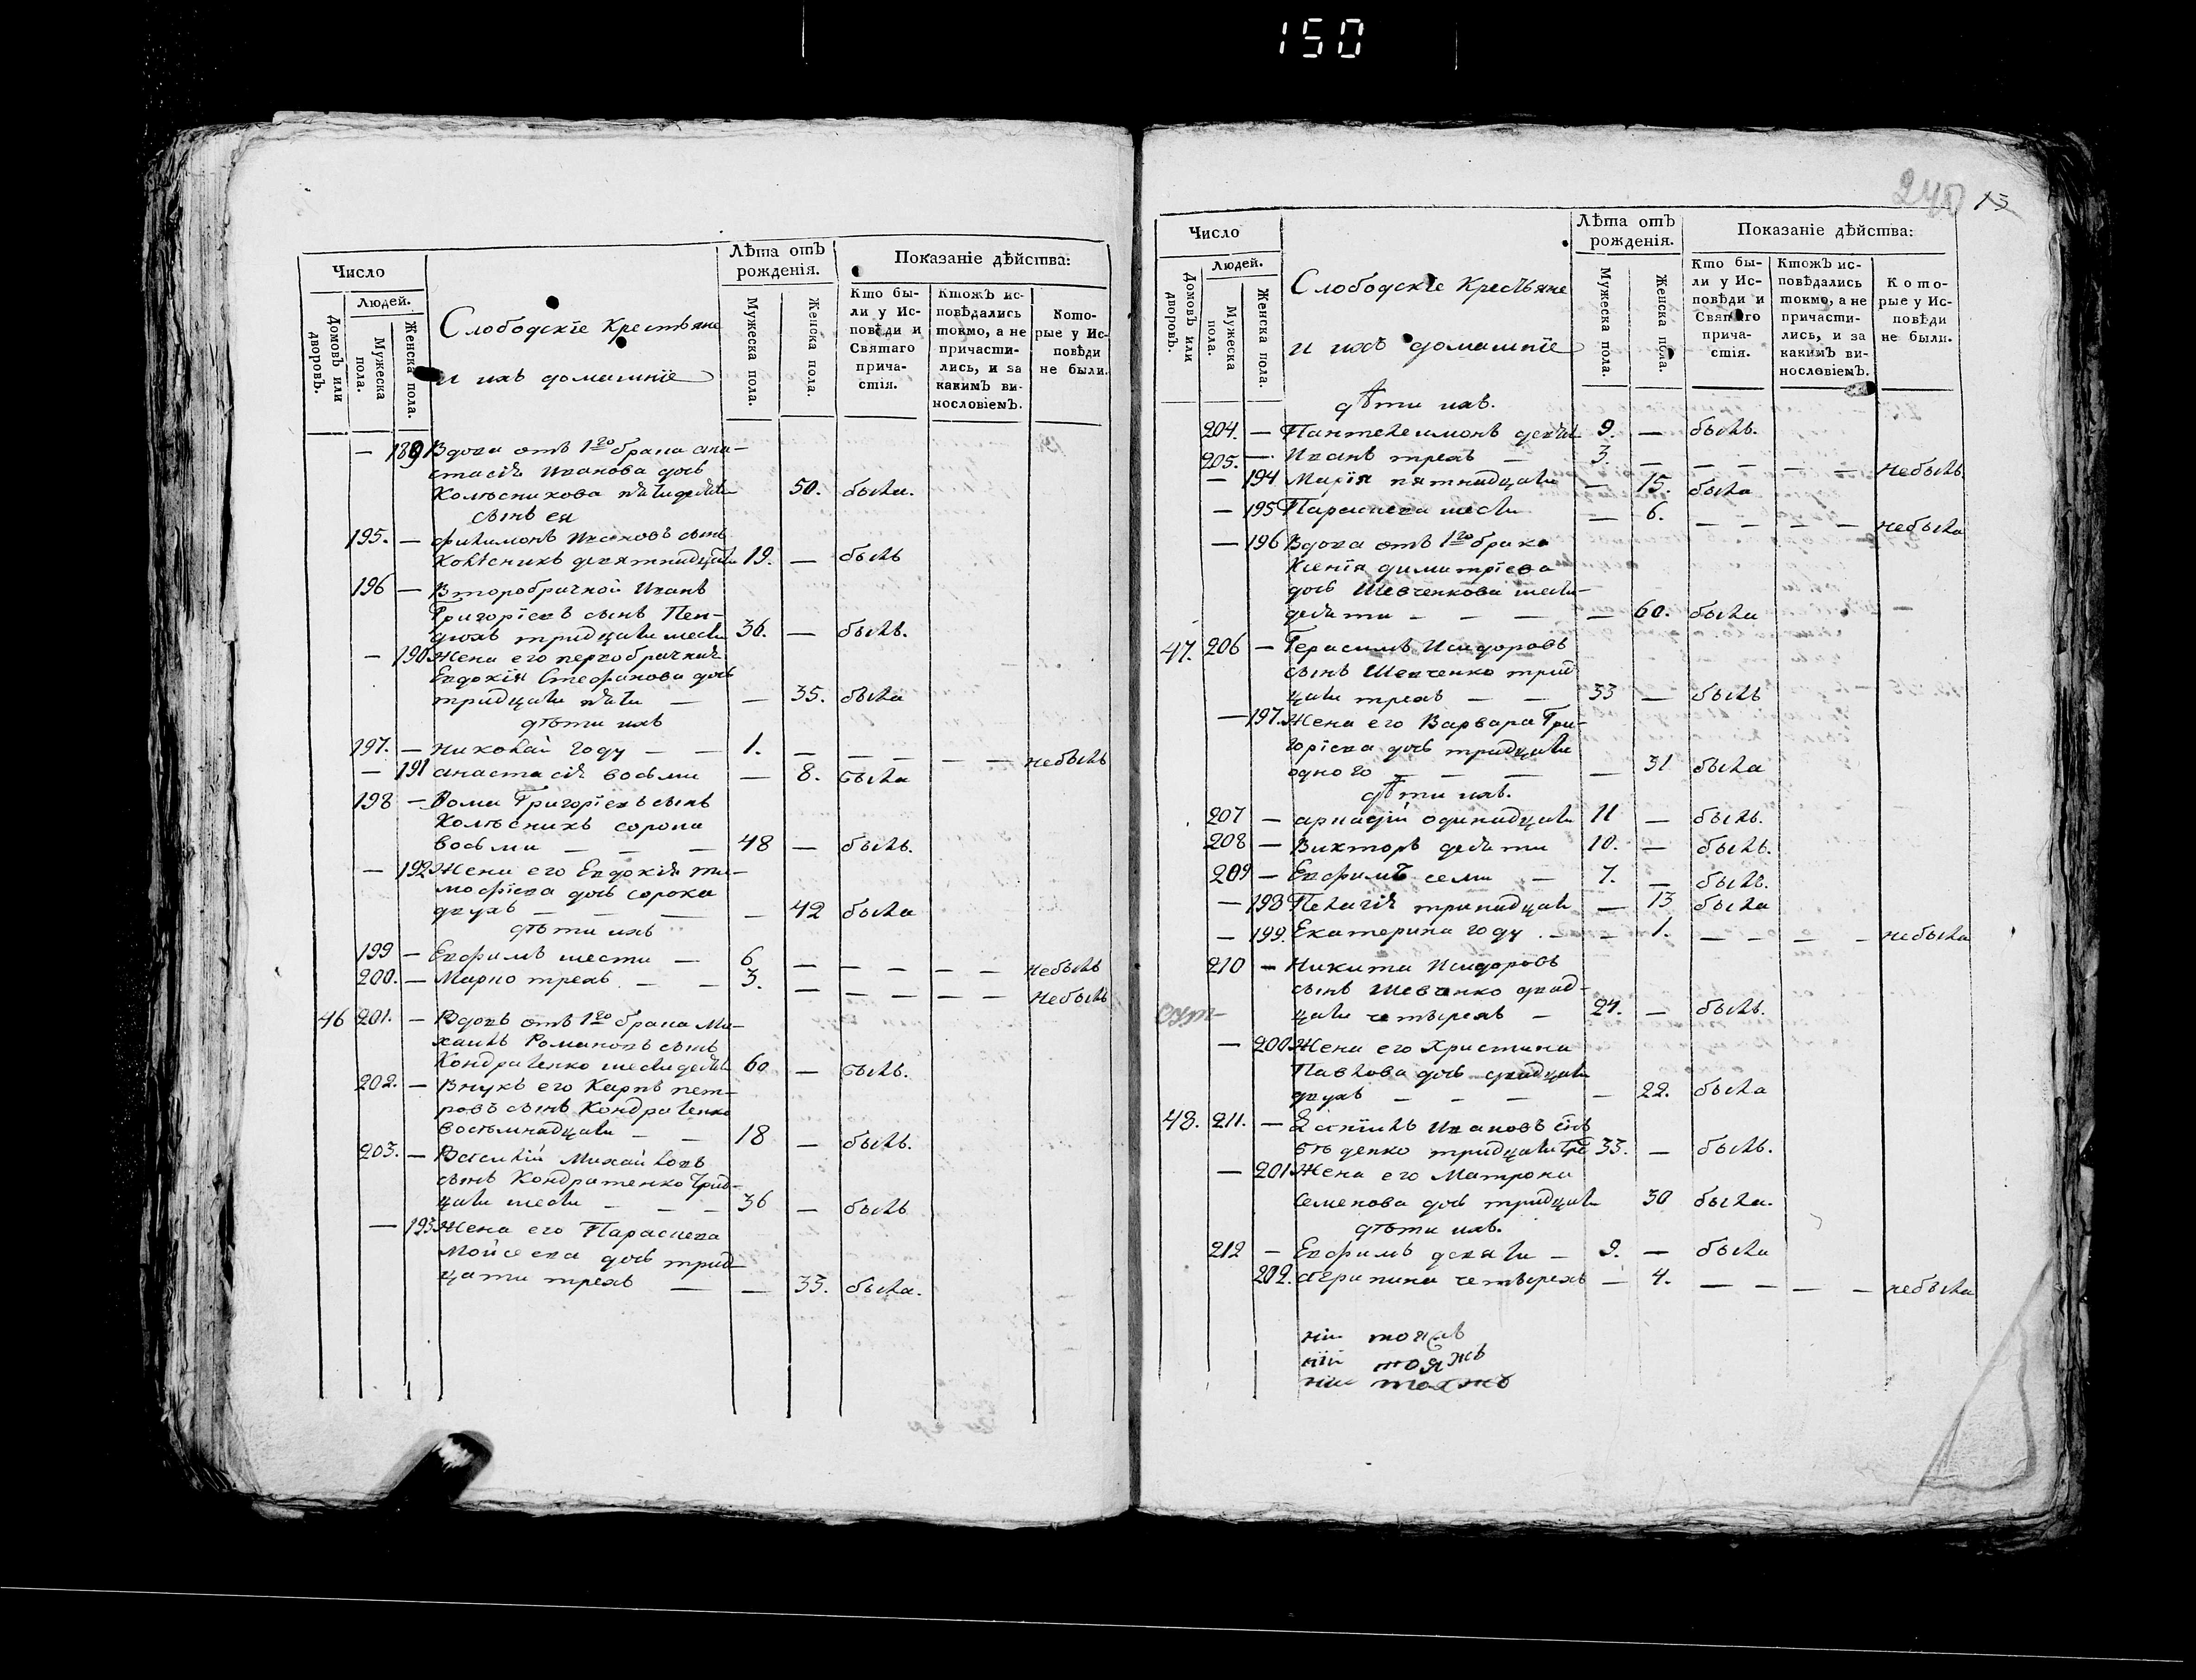 150
Число
Людей.
Домовъ или дворовъ.
Мужеска пола.
Женска пола.
Слободскіе Крестьяне
и ихъ домашніе
Лѣта отъ рожденія.
Мужеска пола.
Женска пола.
Показаніе дѣйства:
Кто бы-
ли у Ис-
повѣди и
Святаго
прича-
стія.
Ктожъ ис-
повѣдались
токмо, а не
причасти-
лись, и за
какимъ ви-
нословіемъ.
Кото-
рые у Ис-
повѣди
не были.
— 189 Вдова отъ 1го брака Ана-
стасія Иванова дочь
Колѣсникова пятидесяти 50. была.
сынъ ея
195. — Филимонъ Ивановъ сынъ
Колѣсникъ девятнадцати 19. — былъ
196 — Второбрачной Иванъ
Григоріевъ сынъ Пен-
дюхъ тридцати шести 36. — былъ.
— 190 Жена его первобрачная
Евдокія Стефанова дочь
тридцати пяти — — 35. была
дѣти ихъ
197. — Николай году — — 1. — — — — — небылъ
— 191 Анастасія восьми — 8. была
198 — Фома Григоріевъ сынъ
Колѣсникъ сорока
восьми — — — 48 — былъ.
— 192 Жена его Евдокія Ти-
мофіева дочь сорока
двухъ — — — — 42 была
дѣти ихъ
199 — Евфимъ шести — 6 — — — — — небылъ
200. — Марко трехъ. — — 3. — — — — — Небылъ
46 201. — Вдовъ отъ 1го брака Ми-
хаилъ Романовъ сынъ
Кондратенко шестидесяти 60 — былъ.
202. — Внукъ его Карпъ Пет-
ровъ сынъ Кондратенко
восемнадцати — — 18 — былъ.
203. — Василій Михайловъ
сынъ Кондратенко трид-
цати шести — — — 36 — былъ
— 193 Жена его Параскева
Мойсеева дочь трид-
цати трехъ — — 33. была.
240 13
Число
Людей.
Домовъ или дворовъ.
Мужеска пола.
Женска пола.
Слободскіе Крестьяне
и ихъ домашніе
Лѣта отъ рожденія.
Мужеска пола.
Женска пола.
Показаніе дѣйства:
Кто бы-
ли у Ис-
повѣди и
Святаго
прича-
стія.
Ктожъ ис-
повѣдались
токмо, а не
причасти-
лись, и за
какимъ ви-
нословіемъ.
Кото-
рые у Ис-
повѣди
не были.
дѣти ихъ.
204. — Пантелеимонъ девяти 9. — былъ.
205. — Иванъ трехъ — 3. — — — — — небылъ.
— 194 Марія пятнадцати — 15. была
— 195 Параскева шести — 6. — — — — небыла
— 196 Вдова отъ 1го брака
Ксенія Димитріева
дочь Шевченкова шести-
десяти — — — — 60. была —
47. 206 — Герасимъ Исидоровъ
сынъ Шевченко трид
цати трехъ — — 33 — былъ
— 197. Жена его Варвара Гри-
горіева дочь тридцати
одного — — — — 31 была
дѣти ихъ.
207 — Аркадій одинадцати 11 — былъ.
208 — Викторъ десяти 10. — былъ.
209 — Евфимъ семи — 7. — былъ.
— 198 Пелагія тринадцати — 13 была
— 199. Екатерина году. — — 1. — — — — небыла
210 — Никита Исидоровъ
сынъ Шевченко двад-
цати четырехъ — 24. — былъ.
— 200 Жена его Христина
Павлова дочь двадцати
двухъ — — — — 22. была
48. 211. — Ивановъ сынъ
тридцати трех 33. — былъ.
— 201 Жена его Матрона
Семенова дочь тридцати 30 была.
дѣти ихъ.
212 — Евфимъ девяти — 9. — была
202. Агрипина четырехъ — 4. — — — — небыла